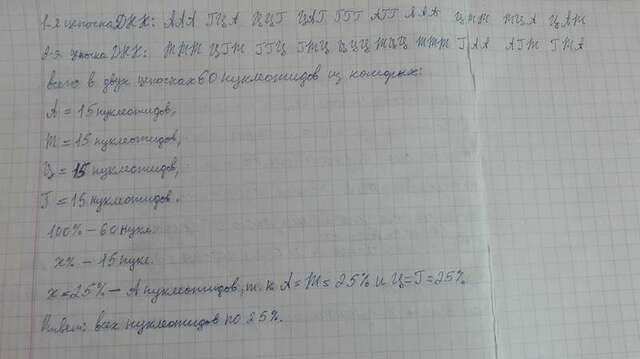 1-я цепочка ДНК: ААА ГЦА ЦЦГ ЦАГ ГГГ АГГ ААА ЦТТ ТЦА ЦАТ
2-я цепочка ДНК: ТТТ ЦГТ ГГЦ ГТЦ ЦЦЦ ТЦЦ ТТТ ГАА АГТ ГТА
всего в двух цепочках 60 нуклеотидов из которых:
А = 15 нуклеотидов,
Т = 15 нуклеотидов,
Ц = 15 нуклеотидов,
Г = 15 нуклеотидов.
100% – 60 нукл.
х% – 15 нукл.
х = 25% – А нуклеотидов, т. к А = Т = 25% и Ц = Г = 25%
Ответ: всех нуклеотидов по 25%.